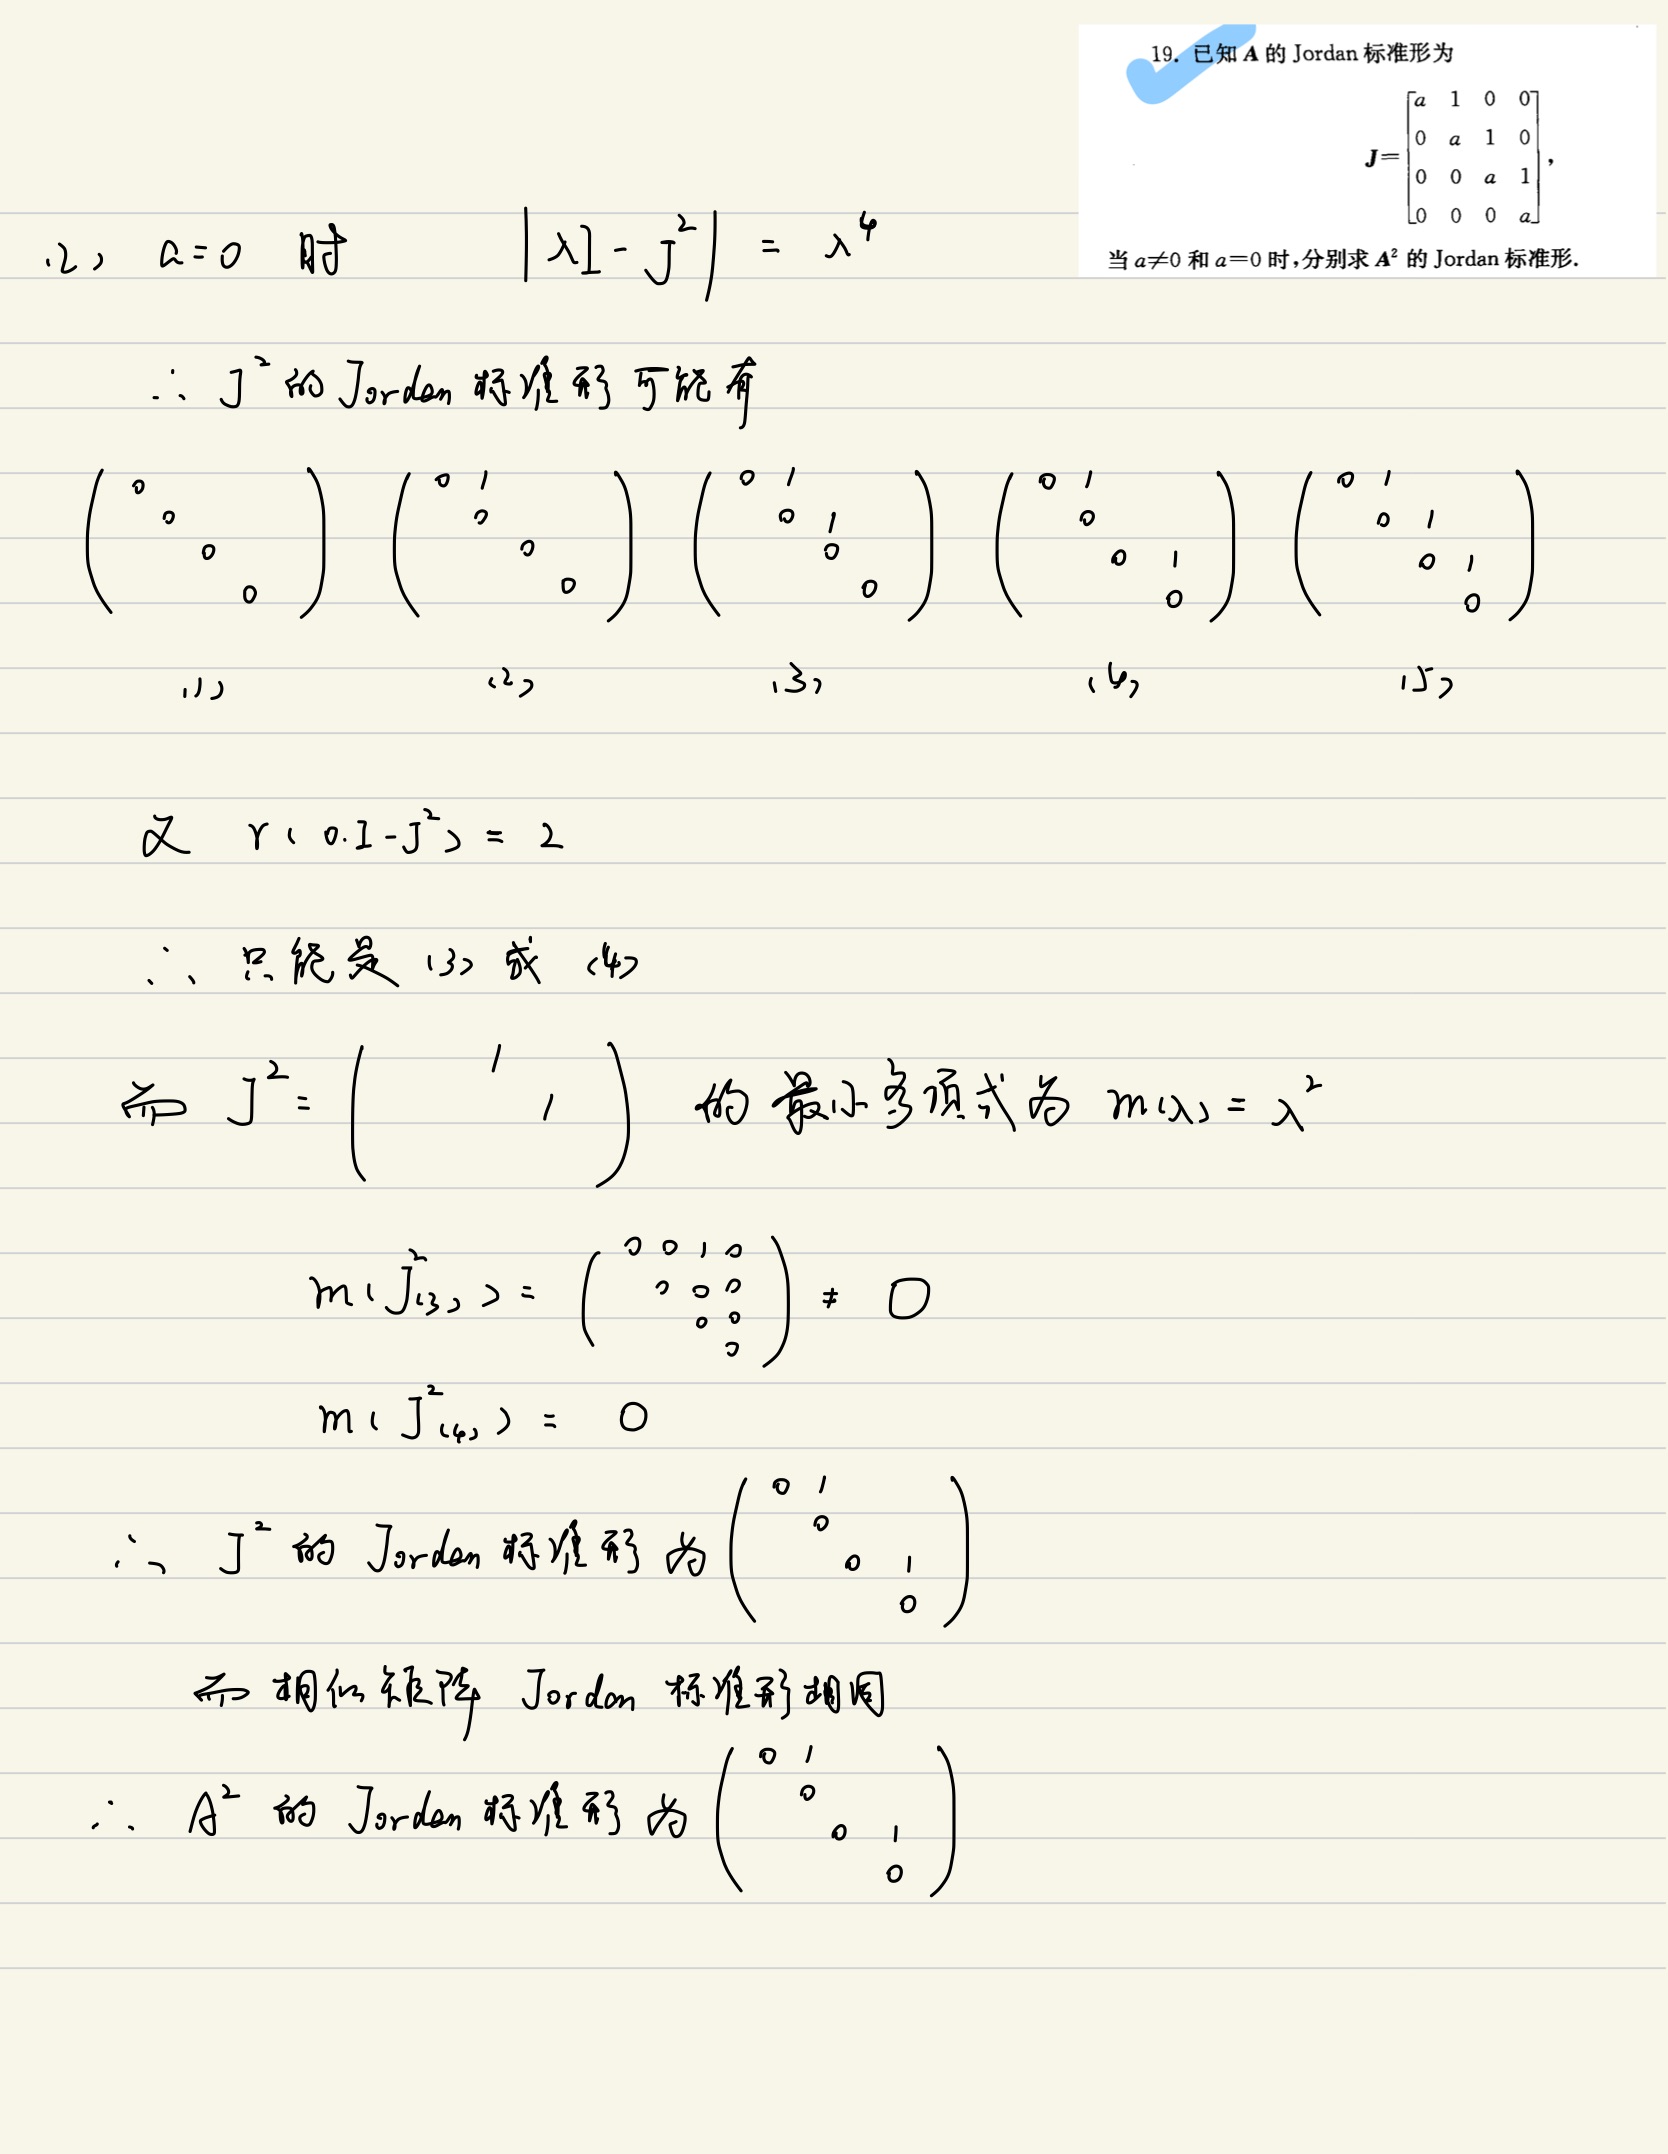 19. 已知 A 的 Jordan 标准形为
J=[a 1 0 0
0 a 1 0
0 0 a 1
0 0 0 a],
当 a≠0 和 a=0 时,分别求 A² 的 Jordan 标准形.
(2) a=0 时 |λI-J²| = λ⁴
∴ J² 的 Jordan 标准形可能有
(0
0
0
0)
(0 1
0
0
0)
(0 1
0 1
0
0)
(0 1
0
0 1
0)
(0 1
0 1
0 1
0)
(1) (2) (3) (4) (5)
又 r(0·I-J²) = 2
∴ 只能是 (3) 或 (4)
而 J² = (1
1) 的最小多项式为 m(λ) = λ²
m(J²(3)) = (0 0 1 0
0 0 0
0 0
0) ≠ 0
m(J²(4)) = 0
∴ J² 的 Jordan 标准形为 (0 1
0
0 1
0)
而相似矩阵 Jordan 标准形相同
∴ A² 的 Jordan 标准形为 (0 1
0
0 1
0)